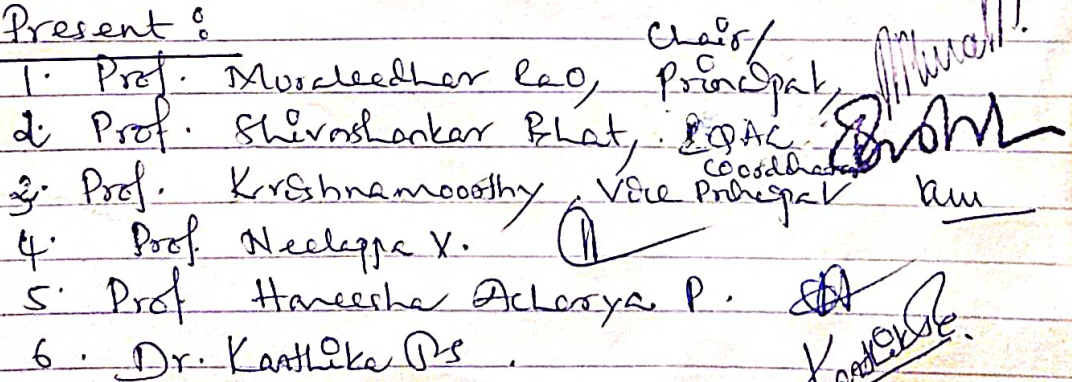 Present :
Chair/
1. Prof. Muraleedhar Rao, Principal,
2. Prof. Shivashankar Bhat, IQAC
Coordinator
3. Prof. Krishnamoorthy, Vice Principal
4. Prof. Neelappa V.
5. Prof Hareesha Acharya P.
6. Dr. Karthika